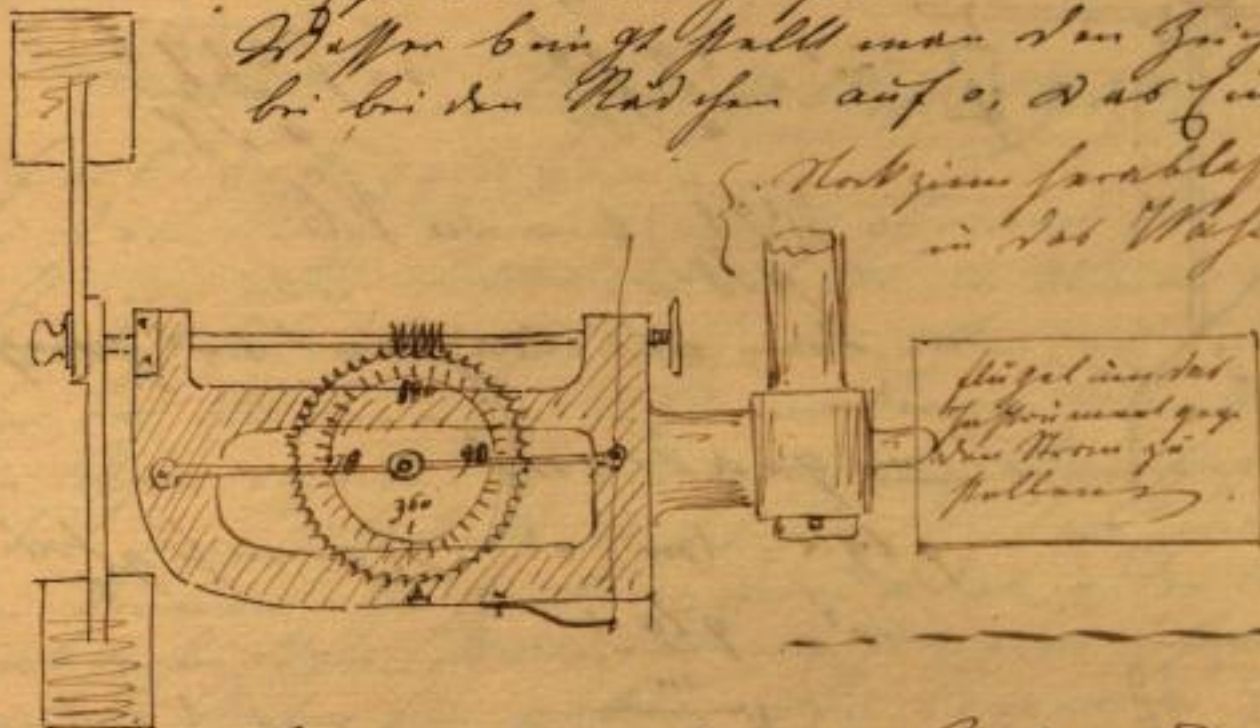 Wasser bringt stellt man den Zeig
bei bei den Rädchen auf 0, Das
Stock zum herablas
in das Wass
Flügel um das
Instrument gege
den Strom zu
stellen.
180
90
360